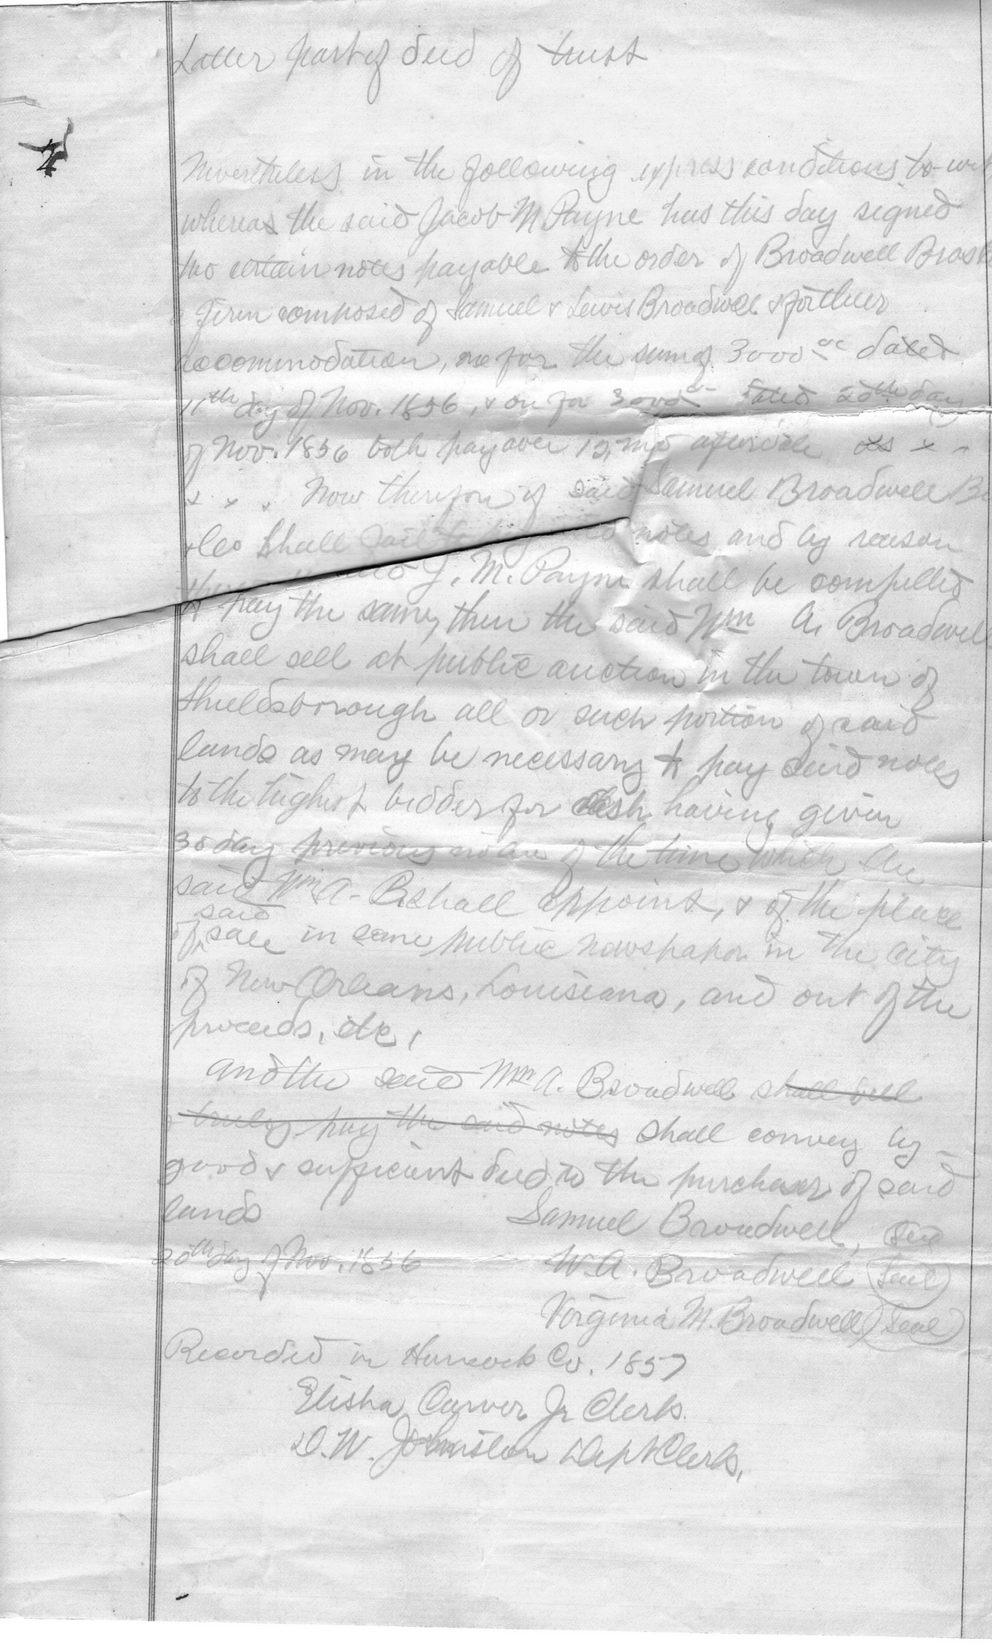 Latter part of deed of trust
Nevertheless in the following express conditions to-wit
whereas the said Jacob M Payne has this day signed
two certain notes payable to the order of Broadwell Bros
a firm composed of Samuel & Lewis Broadwell & for their
accommodation, one for the sum of 3000 dated
11th day of Nov. 1856, & on for 3000 dated 20th day
of Nov. 1856 both payable 12 m after date x
x x . Now therefore if said Samuel Broadwell
& Co shall fail to notes and by reason
J. M. Payne shall be compelled
to pay the same, then the said Wm A. Broadwell
shall sell at public auction in the town of
Shieldsborough all or such portion of said
lands as may be necessary to pay said notes
to the highest bidder for cash having given
30 day previous notice of the time which he
said Wm A. B. shall appoint, & of the place
of said sale in some public newspaper in the city
of New Orleans, Louisiana, and out of the
proceeds, etc,
and the said Wm A. Broadwell shall well
& truly pay the said notes shall convey by
good & sufficient deed to the purchaser of said
lands Samuel Broadwell, Seal
20th day of Nov. 1856 W. A. Broadwell (Seal)
Virginia M. Broadwell (Seal)
Recorded in Hancock Co. 1857
Elisha Carver Jr Clerk.
D. W. Johnston Dept Clerk.